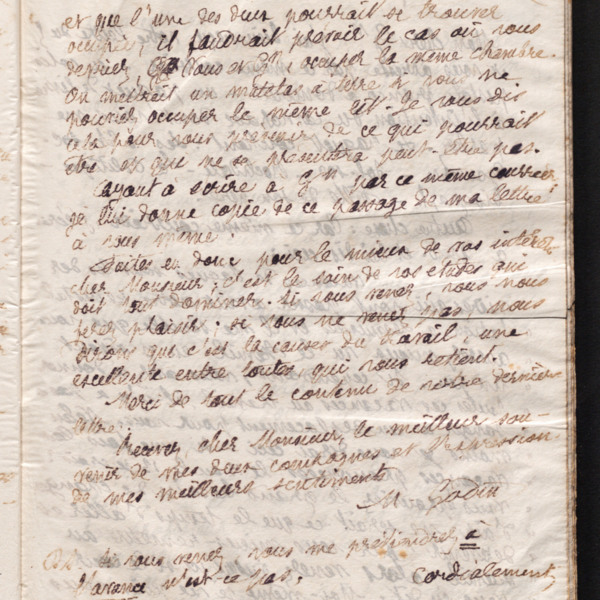 et que l'une des deux pourrait se trouver
occupée, il faudrait prévoir le cas où vous
devriez, Vous et Gn, occuper la même chambre.
On mettrait un matelas à terre si vous ne
pouviez occuper le même lit. Je vous dis
cela pour vous prévenir de ce qui pourrait
être et qui ne se présentera peut-être pas.
Ayant à écrire à Gn par ce même courrier
je lui donne copie de ce passage de ma lettre
à vous même.
Faites en donc pour le mieux de vos intérêts
cher Monsieur; c'est le soin de vos études qui
doit tout dominer. Si vous venez, vous nous
ferez plaisir; si vous ne venez pas nous
dirons que c'est la cause du travail, une
excellente entre toutes, qui vous retient.
Merci de tout le contenu de votre dernière
lettre.
Recevez, cher Monsieur, le meilleur sou-
venir de mes deux compagnes et l'expression
de mes meilleurs sentiments
M Godin
Si vous venez, vous me préviendrez à
l'avance n'est-ce pas.
Cordialement